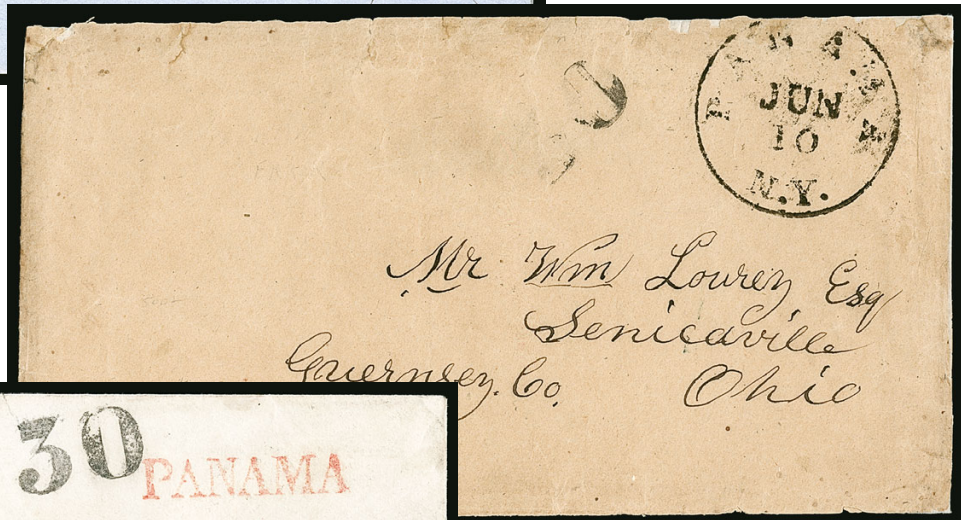 PANAMA
JUN
10
N.Y.
Mr Wm Lourey Esq
Senicaville
Guernsey Co.
Ohio
30
PANAMA